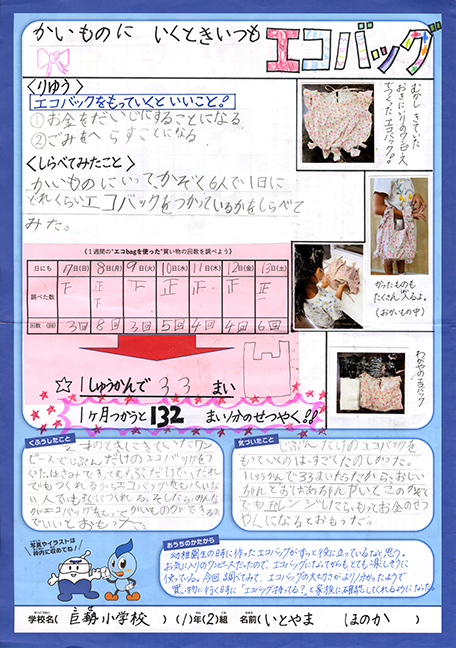 かいものに いくときいつも エコバッグ
<りゆう>
エコバックをもっていくと いいこと!
①お金をだいじにすることになる
②ごみをへらすことになる
<しらべてみたこと>
かいものにいって、かぞく6人で1日に
どれくらいエコバックをつかっているかをしらべて
みた。
むかし きていた
おきにいりのワンピース
でつくったエコバッグ。
かったものも
たくさん入るよ。
(おかいもの中)
わがやのエコバック
《1週間の"エコbagを使った"買い物の回数を調べよう》
日にち 7日(日) 8日(月) 9日(火) 10日(水) 11日(木) 12日(金) 13日(土)
調べた数 下 正 下 下 正 正 正 正 一
回数(回) 3回 8回 3回 5回 4回 4回 6回
☆ 1しゅうかんで 33 まい
1ヶ月つかうと132 まい分のせつやく!!
くふうしたこと
ピースでじぶんだけのエコバッグをつ
いい人でもすぐにつくれる。そしたら、みんな
がエコバッグをもって かいものができる
でいいとおもった。
気づいたこと
じぶんだけのエコバックを
もっていくのは、すごくたのしかった。
1しゅうかんで33まいだったから、おじい
ちゃんとおばあちゃん
やくになるとおもった。
おうちのかたから
幼稚園生の時に作ったエコバッグがずっと役に立っているなと思う。
お気に入りのワンピースだったので、エコバッグになってからもとても楽しそうに
使っている。今回調べてみて、エコバッグの大切さがより分かったようで
買い物に行く時に「エコバッグ持ってる?」と家族に確認してくれるようになった。
写真やイラストは
枠内に収めてね!
学校名(巨勢小学校)(1)年(2)組 名前(いとやま ほのか)